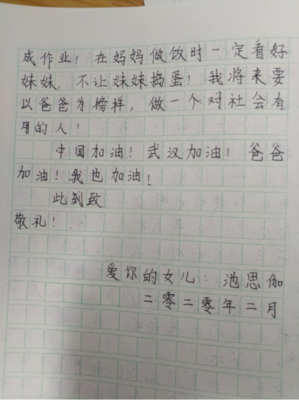 成作业！在妈妈做饭时一定看好
妹妹，不让妹妹捣蛋！我将来要
以爸爸为榜样，做一个对社会有
用的人！
中国加油！武汉加油！爸爸
加油！我也加油！
此到致
敬礼！
爱你的女儿：池思伽
二零二零年二月